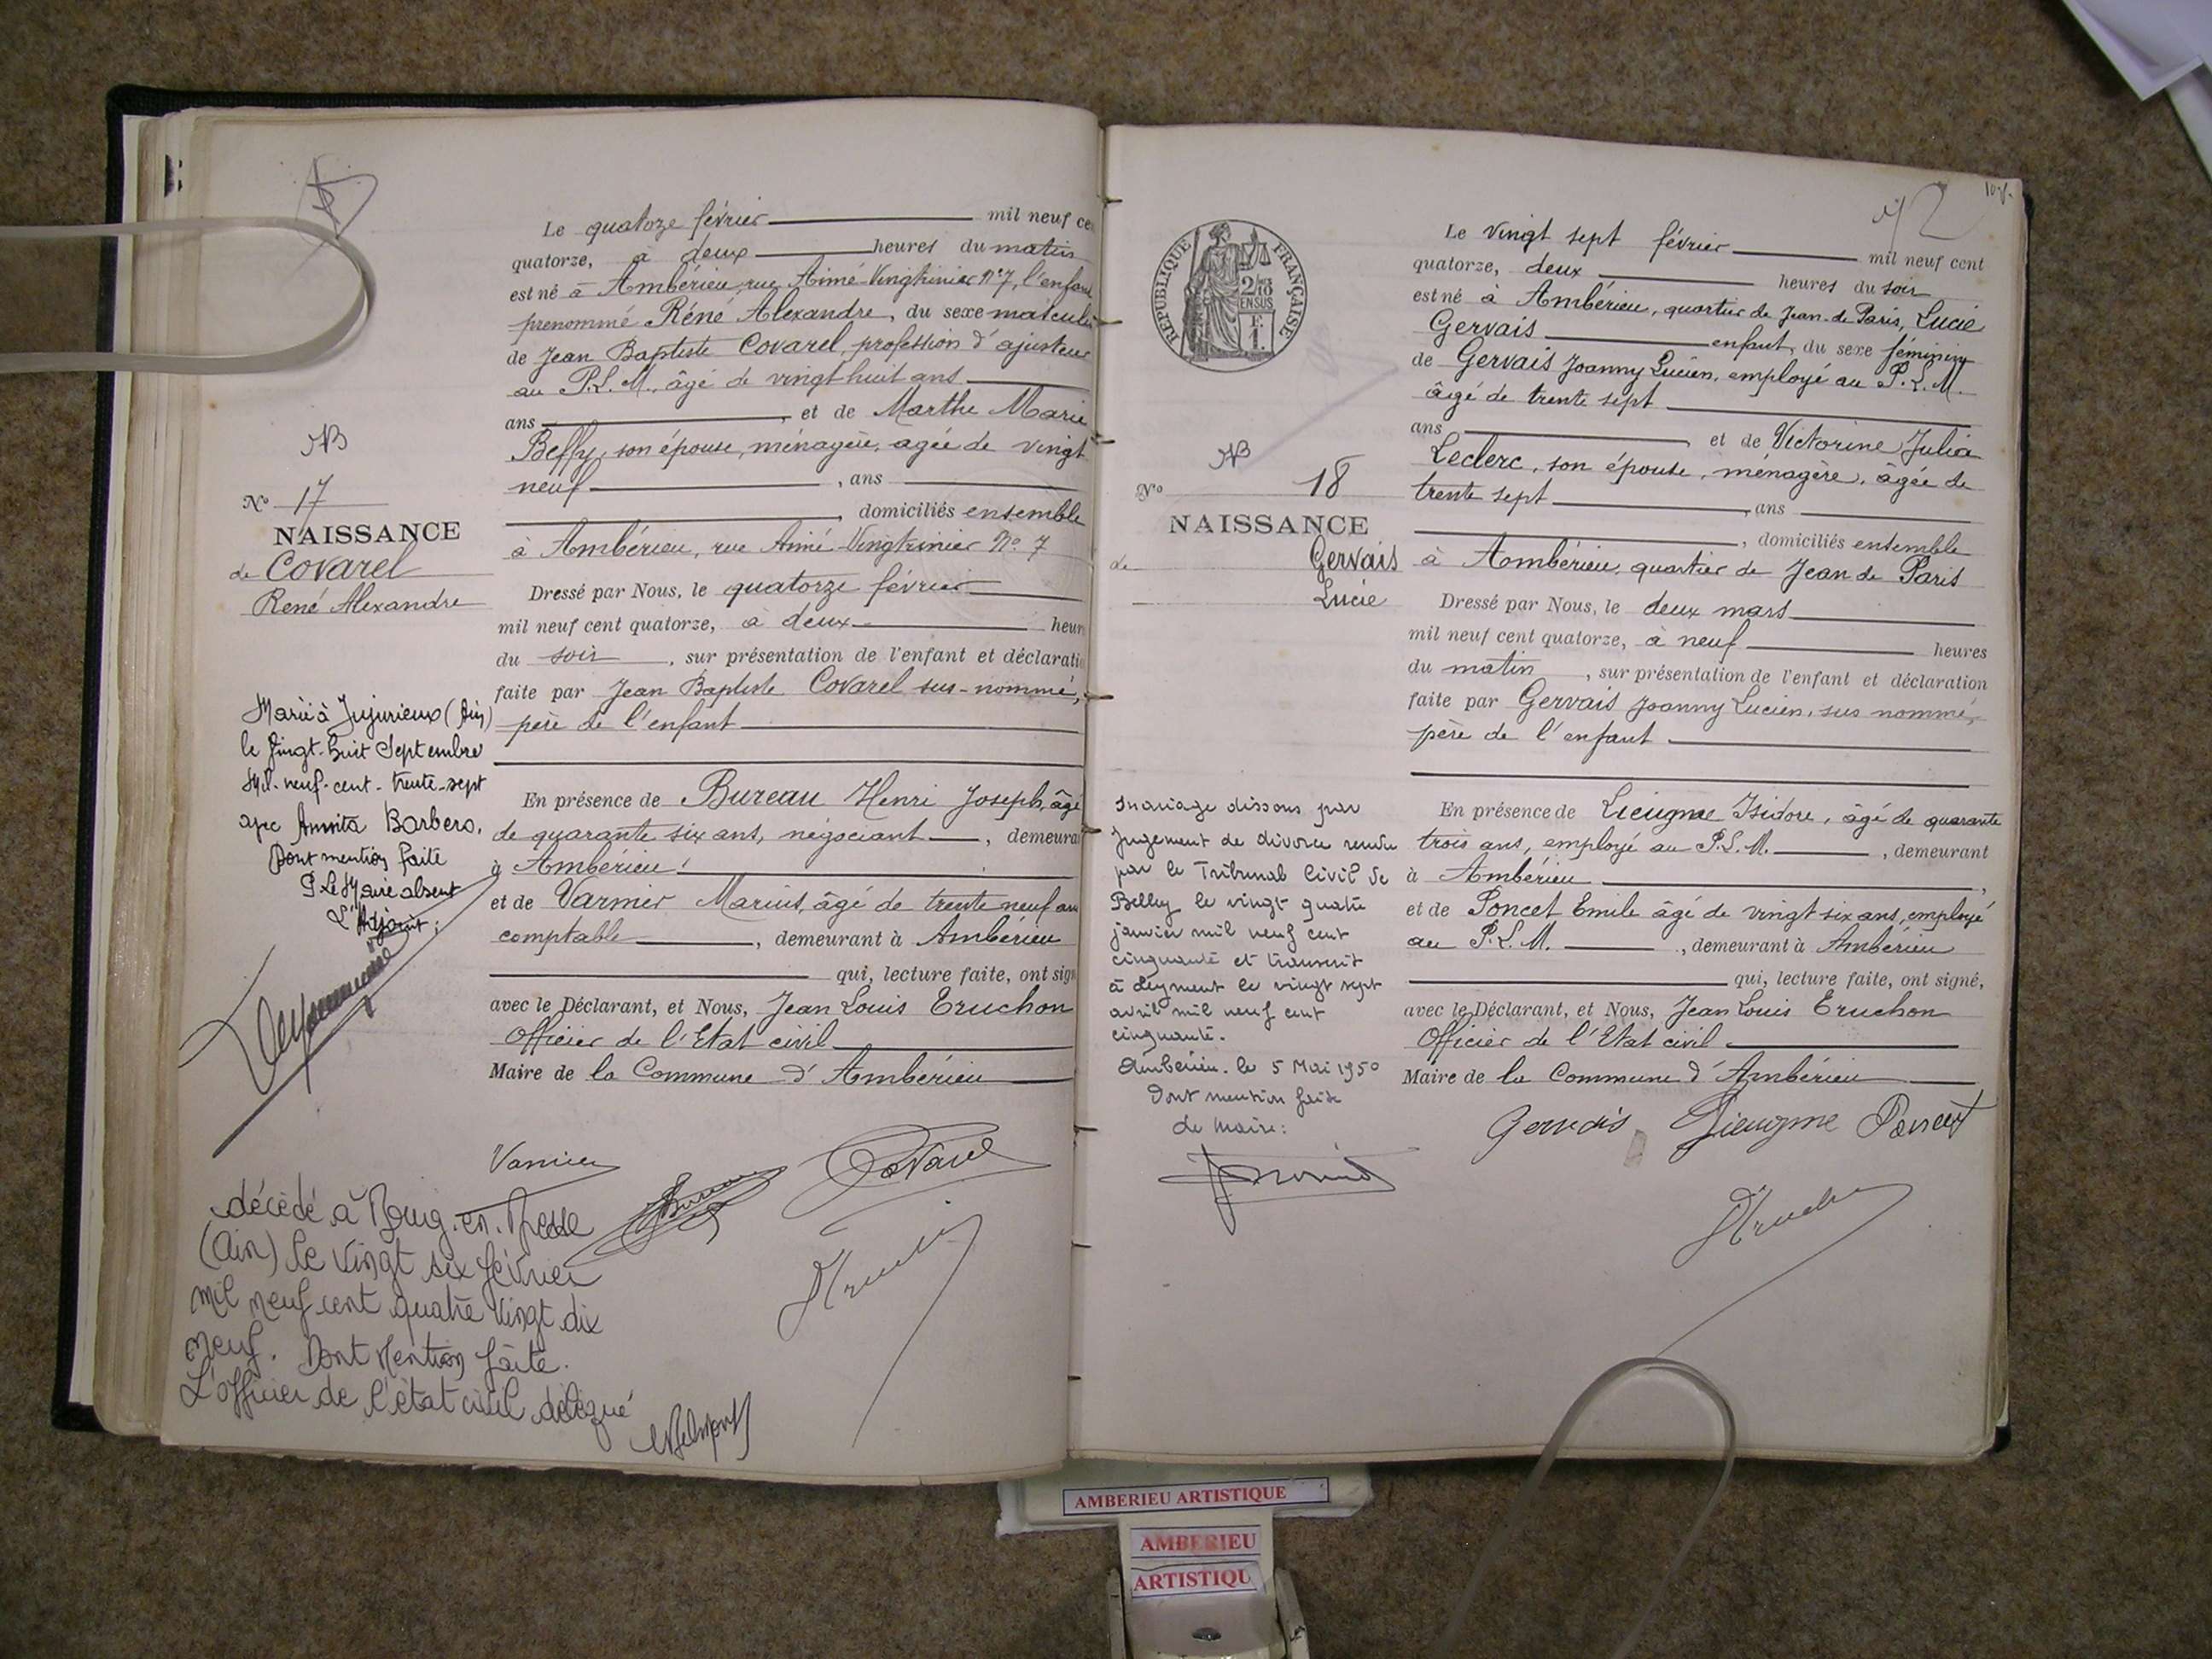 Le quatorze février mil neuf ce
quatorze, à deux heures du matin
est né à Ambérieu, rue Aimé-Vingtrinier N°7, l'enfant
prénommé Réné Alexandre, du sexe masculin
de Jean Baptiste Covarel, profession d'ajusteur
au P.L.M., âgé de vingt huit ans
ans , et de Marthe Marie
Beffy, son épouse, ménagère, agée de vingt
neuf , ans
, domiciliés ensemble
à Ambérieu, rue Aimé-Vingtrinier N° 7
Dressé par Nous, le quatorze février
mil neuf cent quatorze, à deux heur
du soir , sur présentation de l'enfant et déclarati
faite par Jean Baptiste Covarel sus-nommé,
père de l'enfant
En présence de Bureau Henri Joseph, âgé
de quarante six ans, négociant , demeura
à Ambérieu
et de Varnier Marius, âgé de trente neuf an
comptable , demeurant à Ambérieu
qui, lecture faite, ont sign
avec le Déclarant, et Nous, Jean Louis Eruchon
Officier de l'Etat civil
Maire de la Commune d'Ambérieu
NB
N° 17
NAISSANCE
de Covarel
René Alexandre
Marié à Jujurieux (Ain)
le Vingt-huit Septembre
Mil-neuf-cent-trente-sept
avec Annita Barbero.
Dont mention faite
P. Le Maire absent
L'Adjoint:
Varnier
Covarel
décédé à Bourg-en-Bresse
(Ain) le vingt six février
mil neuf cent quatre vingt dix
neuf. Dont Mention faite.
L'officier de l'état civil délégué
RÉPUBLIQUE FRANÇAISE
2/10
EN SUS
F.
1.
107.
NB
N° 18
NAISSANCE
de Gervais
Lucie
Le Vingt sept février mil neuf cent
quatorze, deux heures du soir
est né à Ambérieu, quartier de Jean-de Paris, Lucie
Gervais enfant, du sexe féminin
de Gervais Joanny Lucien, employé au P.L.M.
âgé de trente sept
ans , et de Victorine Julia
Leclerc, son épouse, ménagère, âgée de
trente sept , ans
, domiciliés ensemble
à Ambérieu, quartier de Jean de Paris
Dressé par Nous, le deux mars
mil neuf cent quatorze, à neuf heures
du matin , sur présentation de l'enfant et déclaration
faite par Gervais Joanny Lucien, sus nommé,
père de l'enfant
En présence de Lieugme Isidore, âgé de quarante
trois ans, employé au P.L.M. , demeurant
à Ambérieu ,
et de Poncet Emile âgé de vingt six ans, employé
au P.L.M. , demeurant à Ambérieu
qui, lecture faite, ont signé,
avec le Déclarant, et Nous, Jean Louis Eruchon
Officier de l'Etat civil
Maire de la Commune d'Ambérieu
mariage dissous par
jugement de divorce rendu
par le Tribunal Civil de
Belley le vingt quatre
janvier mil neuf cent
cinquante et transcrit
à Leyment le vingt sept
avril mil neuf cent
cinquante.
Ambérieu. le 5 Mai 1950
Dont mention faite
Le Maire:
Gervais Lieugme Poncet
AMBERIEU ARTISTIQUE
AMBERIEU
ARTISTIQU